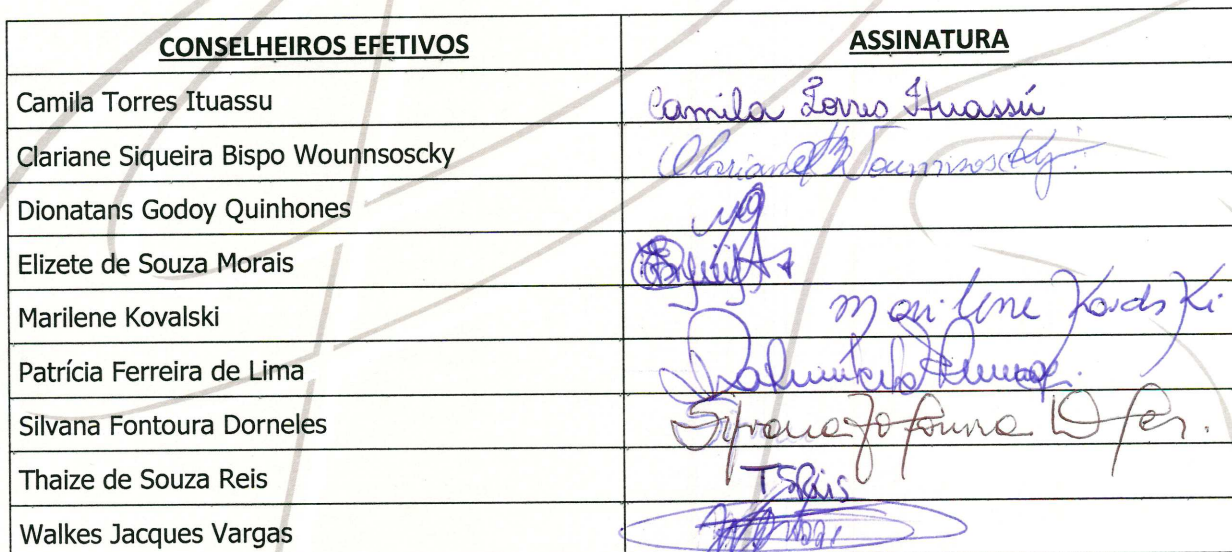 CONSELHEIROS EFETIVOS ASSINATURA
Camila Torres Ituassu Camila Torres Ituassú
Clariane Siqueira Bispo Wounnsoscky Clariane Wounnsoscky
Dionatans Godoy Quinhones
Elizete de Souza Morais
Marilene Kovalski Marilene Kovalski
Patrícia Ferreira de Lima
Silvana Fontoura Dorneles Silvana
Thaize de Souza Reis TSReis
Walkes Jacques Vargas